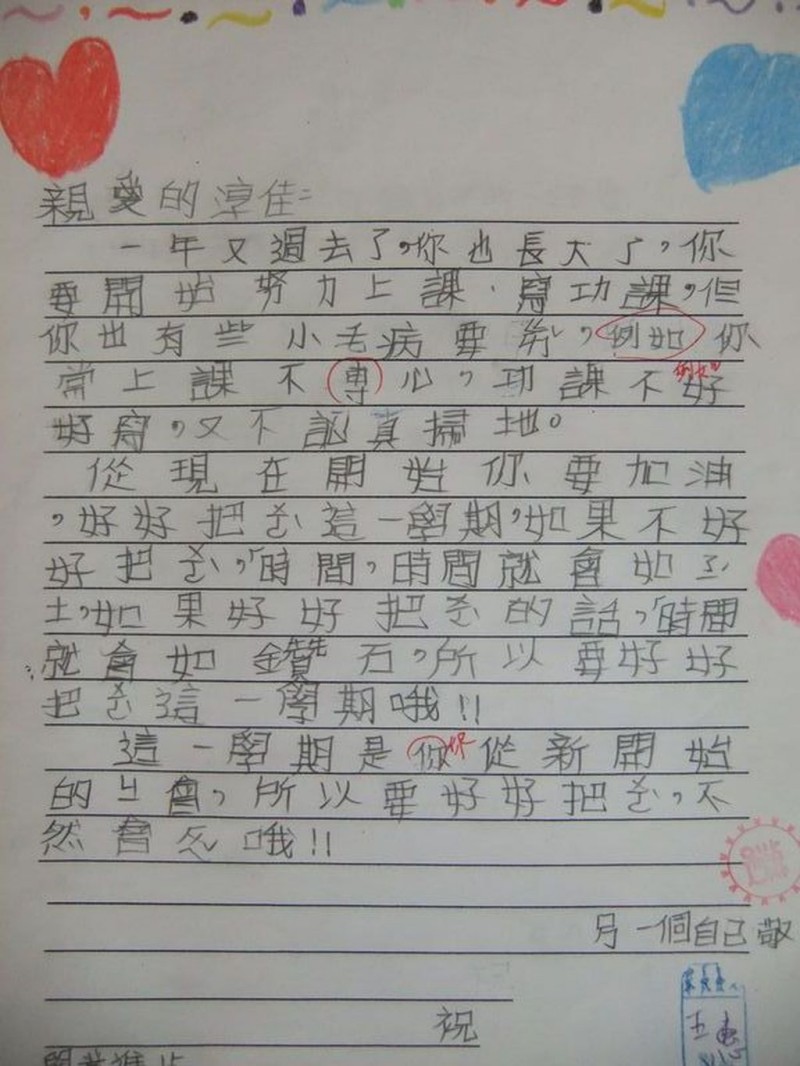 親愛的淳佳:
一年又過去了,你也長大了,你
要開始努力上課、寫功課,但
你也有些小毛病要,例如你
常上課不專心,功課不好
例如
好寫,又不認真掃地。
從現在開始你要加油
,好好把ㄨㄛˋ這一學期,如果不好
好把ㄨㄛˋ,時間,時間就會如
土,如果好好把ㄨㄛˋ的話,時間
就會如鑽石,所以要好好
把ㄨㄛˋ這一學期哦!!
這一學期是你你從新開始
的ㄐㄧ會,所以要好好把ㄨㄛˋ,不
然會哦!!
另一個自己敬
祝